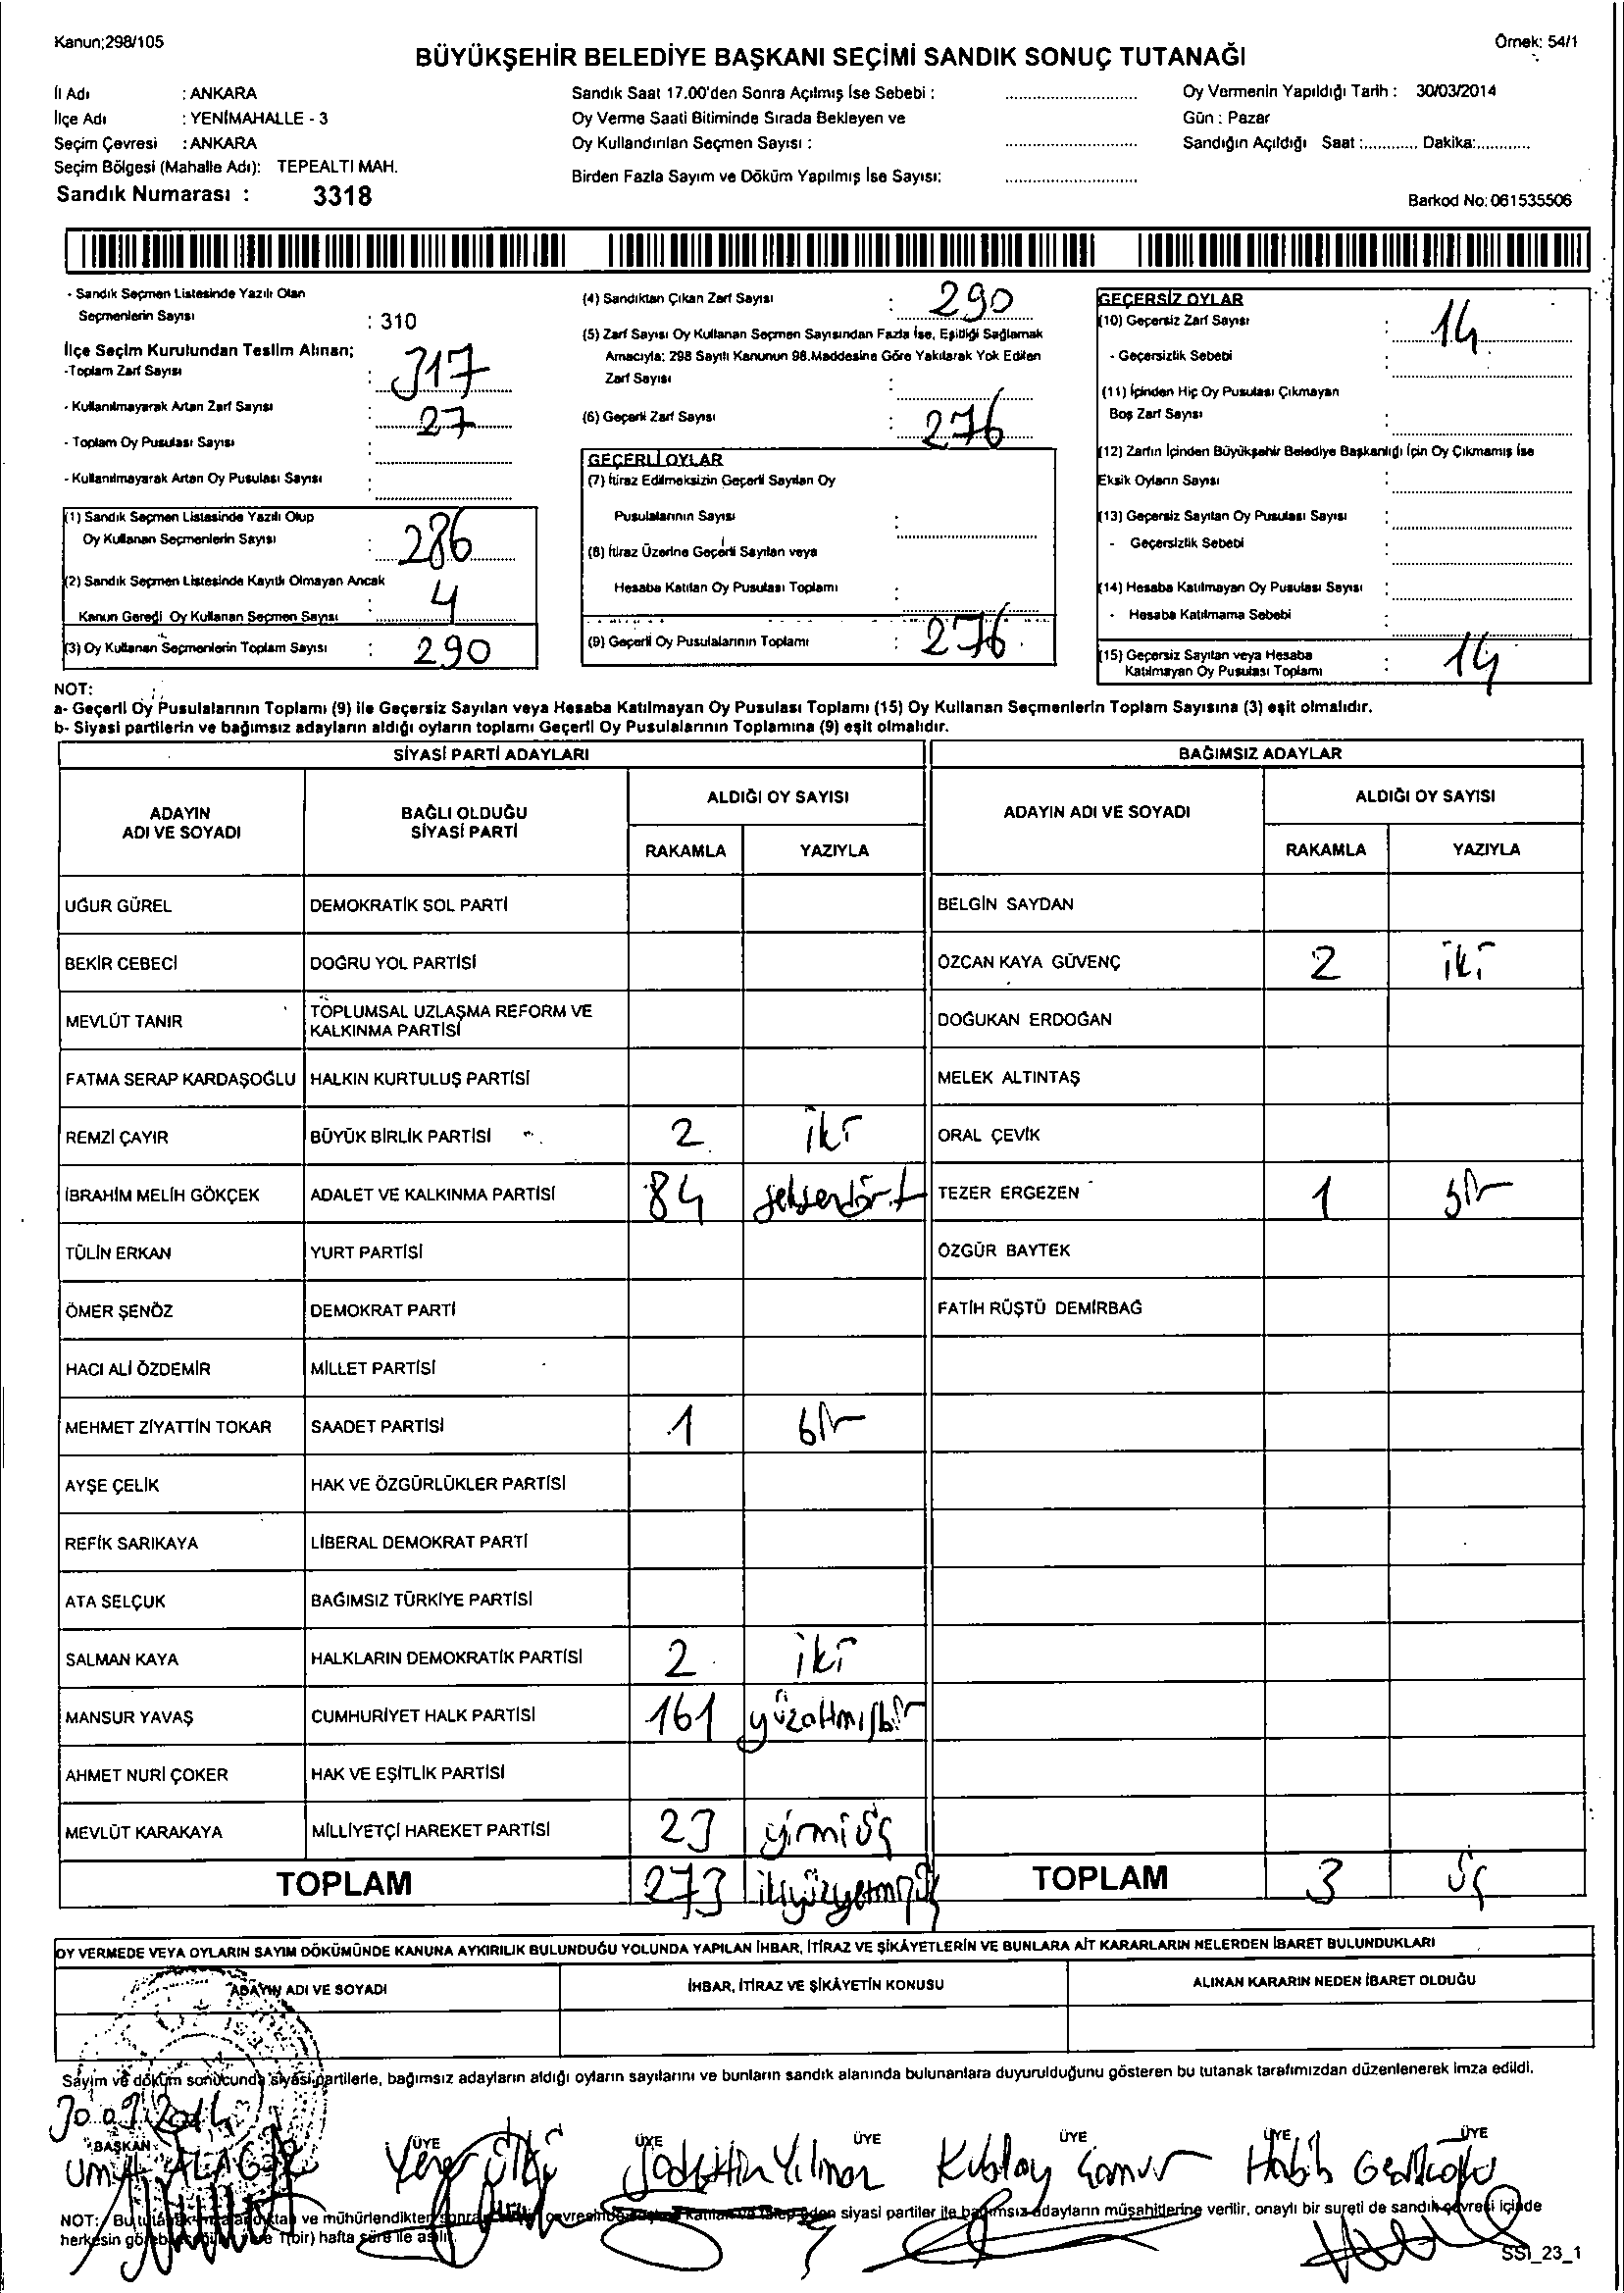 Kanun;298/105
Örnek: 54/1
BÜYÜKŞEHİR BELEDİYE BAŞKANI SEÇİMİ SANDIK SONUÇ TUTANAĞI
İl Adı : ANKARA
İlçe Adı : YENİMAHALLE - 3
Seçim Çevresi : ANKARA
Seçim Bölgesi (Mahalle Adı): TEPEALTI MAH.
Sandık Numarası : 3318
Sandık Saat 17.00'den Sonra Açılmış İse Sebebi :
Oy Verme Saati Bitiminde Sırada Bekleyen ve
Oy Kullandırılan Seçmen Sayısı :
Birden Fazla Sayım ve Döküm Yapılmış İse Sayısı:
Oy Vermenin Yapıldığı Tarih : 30/03/2014
Gün : Pazar
Sandığın Açıldığı Saat :............ Dakika:............
Barkod No: 061535506
- Sandık Seçmen Listesinde Yazılı Olan
Seçmenlerin Sayısı : 310
İlçe Seçim Kurulundan Teslim Alınan;
-Toplam Zarf Sayısı : 317
- Kullanılmayarak Artan Zarf Sayısı : 27
- Toplam Oy Pusulası Sayısı :
- Kullanılmayarak Artan Oy Pusulası Sayısı :
(1) Sandık Seçmen Listesinde Yazılı Olup
Oy Kullanan Seçmenlerin Sayısı : 286
(2) Sandık Seçmen Listesinde Kayıtlı Olmayan Ancak
Kanun Gereği Oy Kullanan Seçmen Sayısı : 4
(3) Oy Kullanan Seçmenlerin Toplam Sayısı : 290
(4) Sandıktan Çıkan Zarf Sayısı : 290
(5) Zarf Sayısı Oy Kullanan Seçmen Sayısından Fazla İse, Eşitliği Sağlamak
Amacıyla; 298 Sayılı Kanunun 98.Maddesine Göre Yakılarak Yok Edilen
Zarf Sayısı :
(6) Geçerli Zarf Sayısı : 276
GEÇERLİ OYLAR
(7) İtiraz Edilmeksizin Geçerli Sayılan Oy
Pusulalarının Sayısı :
(8) İtiraz Üzerine Geçerli Sayılan veya
Hesaba Katılan Oy Pusulası Toplamı :
(9) Geçerli Oy Pusulalarının Toplamı : 276
GEÇERSİZ OYLAR
(10) Geçersiz Zarf Sayısı : 14
- Geçersizlik Sebebi :
(11) İçinden Hiç Oy Pusulası Çıkmayan
Boş Zarf Sayısı :
(12) Zarfın İçinden Büyükşehir Belediye Başkanlığı İçin Oy Çıkmamış İse
Eksik Oyların Sayısı :
(13) Geçersiz Sayılan Oy Pusulası Sayısı :
- Geçersizlik Sebebi :
(14) Hesaba Katılmayan Oy Pusulası Sayısı :
- Hesaba Katılmama Sebebi :
(15) Geçersiz Sayılan veya Hesaba
Katılmayan Oy Pusulası Toplamı : 14
NOT:
a- Geçerli Oy Pusulalarının Toplamı (9) ile Geçersiz Sayılan veya Hesaba Katılmayan Oy Pusulası Toplamı (15) Oy Kullanan Seçmenlerin Toplam Sayısına (3) eşit olmalıdır.
b- Siyasi partilerin ve bağımsız adayların aldığı oyların toplamı Geçerli Oy Pusulalarının Toplamına (9) eşit olmalıdır.
SİYASİ PARTİ ADAYLARI BAĞIMSIZ ADAYLAR
ADAYIN ADI VE SOYADI BAĞLI OLDUĞU SİYASİ PARTİ ALDIĞI OY SAYISI ADAYIN ADI VE SOYADI ALDIĞI OY SAYISI
RAKAMLA YAZIYLA RAKAMLA YAZIYLA
UĞUR GÜREL DEMOKRATİK SOL PARTİ BELGİN SAYDAN
BEKİR CEBECİ DOĞRU YOL PARTİSİ ÖZCAN KAYA GÜVENÇ 2 iki
MEVLÜT TANIR TOPLUMSAL UZLAŞMA REFORM VE KALKINMA PARTİSİ DOĞUKAN ERDOĞAN
FATMA SERAP KARDAŞOĞLU HALKIN KURTULUŞ PARTİSİ MELEK ALTINTAŞ
REMZİ ÇAYIR BÜYÜK BİRLİK PARTİSİ 2 iki ORAL ÇEVİK
İBRAHİM MELİH GÖKÇEK ADALET VE KALKINMA PARTİSİ 84 seksendört TEZER ERGEZEN 1 bir
TÜLİN ERKAN YURT PARTİSİ ÖZGÜR BAYTEK
ÖMER ŞENÖZ DEMOKRAT PARTİ FATİH RÜŞTÜ DEMİRBAĞ
HACI ALİ ÖZDEMİR MİLLET PARTİSİ
MEHMET ZİYATTİN TOKAR SAADET PARTİSİ 1 bir
AYŞE ÇELİK HAK VE ÖZGÜRLÜKLER PARTİSİ
REFİK SARIKAYA LİBERAL DEMOKRAT PARTİ
ATA SELÇUK BAĞIMSIZ TÜRKİYE PARTİSİ
SALMAN KAYA HALKLARIN DEMOKRATİK PARTİSİ 2 iki
MANSUR YAVAŞ CUMHURİYET HALK PARTİSİ 161 yüzaltmışbir
AHMET NURİ ÇOKER HAK VE EŞİTLİK PARTİSİ
MEVLÜT KARAKAYA MİLLİYETÇİ HAREKET PARTİSİ 23 yirmiüç
TOPLAM 273 ikiyüzyetmişüç TOPLAM 3 üç
OY VERMEDE VEYA OYLARIN SAYIM DÖKÜMÜNDE KANUNA AYKIRILIK BULUNDUĞU YOLUNDA YAPILAN İHBAR, İTİRAZ VE ŞİKÂYETLERİN VE BUNLARA AİT KARARLARIN NELERDEN İBARET BULUNDUKLARI
ADAYIN ADI VE SOYADI İHBAR, İTİRAZ VE ŞİKÂYETİN KONUSU ALINAN KARARIN NEDEN İBARET OLDUĞU
Sayım ve döküm sonucunda siyasi partilerle, bağımsız adayların aldığı oyların sayılarını ve bunların sandık alanında bulunanlara duyurulduğunu gösteren bu tutanak tarafımızdan düzenlenerek imza edildi.
BAŞKAN ÜYE ÜYE ÜYE ÜYE ÜYE ÜYE
Yılmaz Kubilay Habib
NOT: ve mühürlendikten sonra siyasi partiler ile bağımsız adayların müşahitlerine verilir, onaylı bir sureti de sandık çevresi içinde
herkesin (bir) hafta süre ile asılır.
SSI_23_1